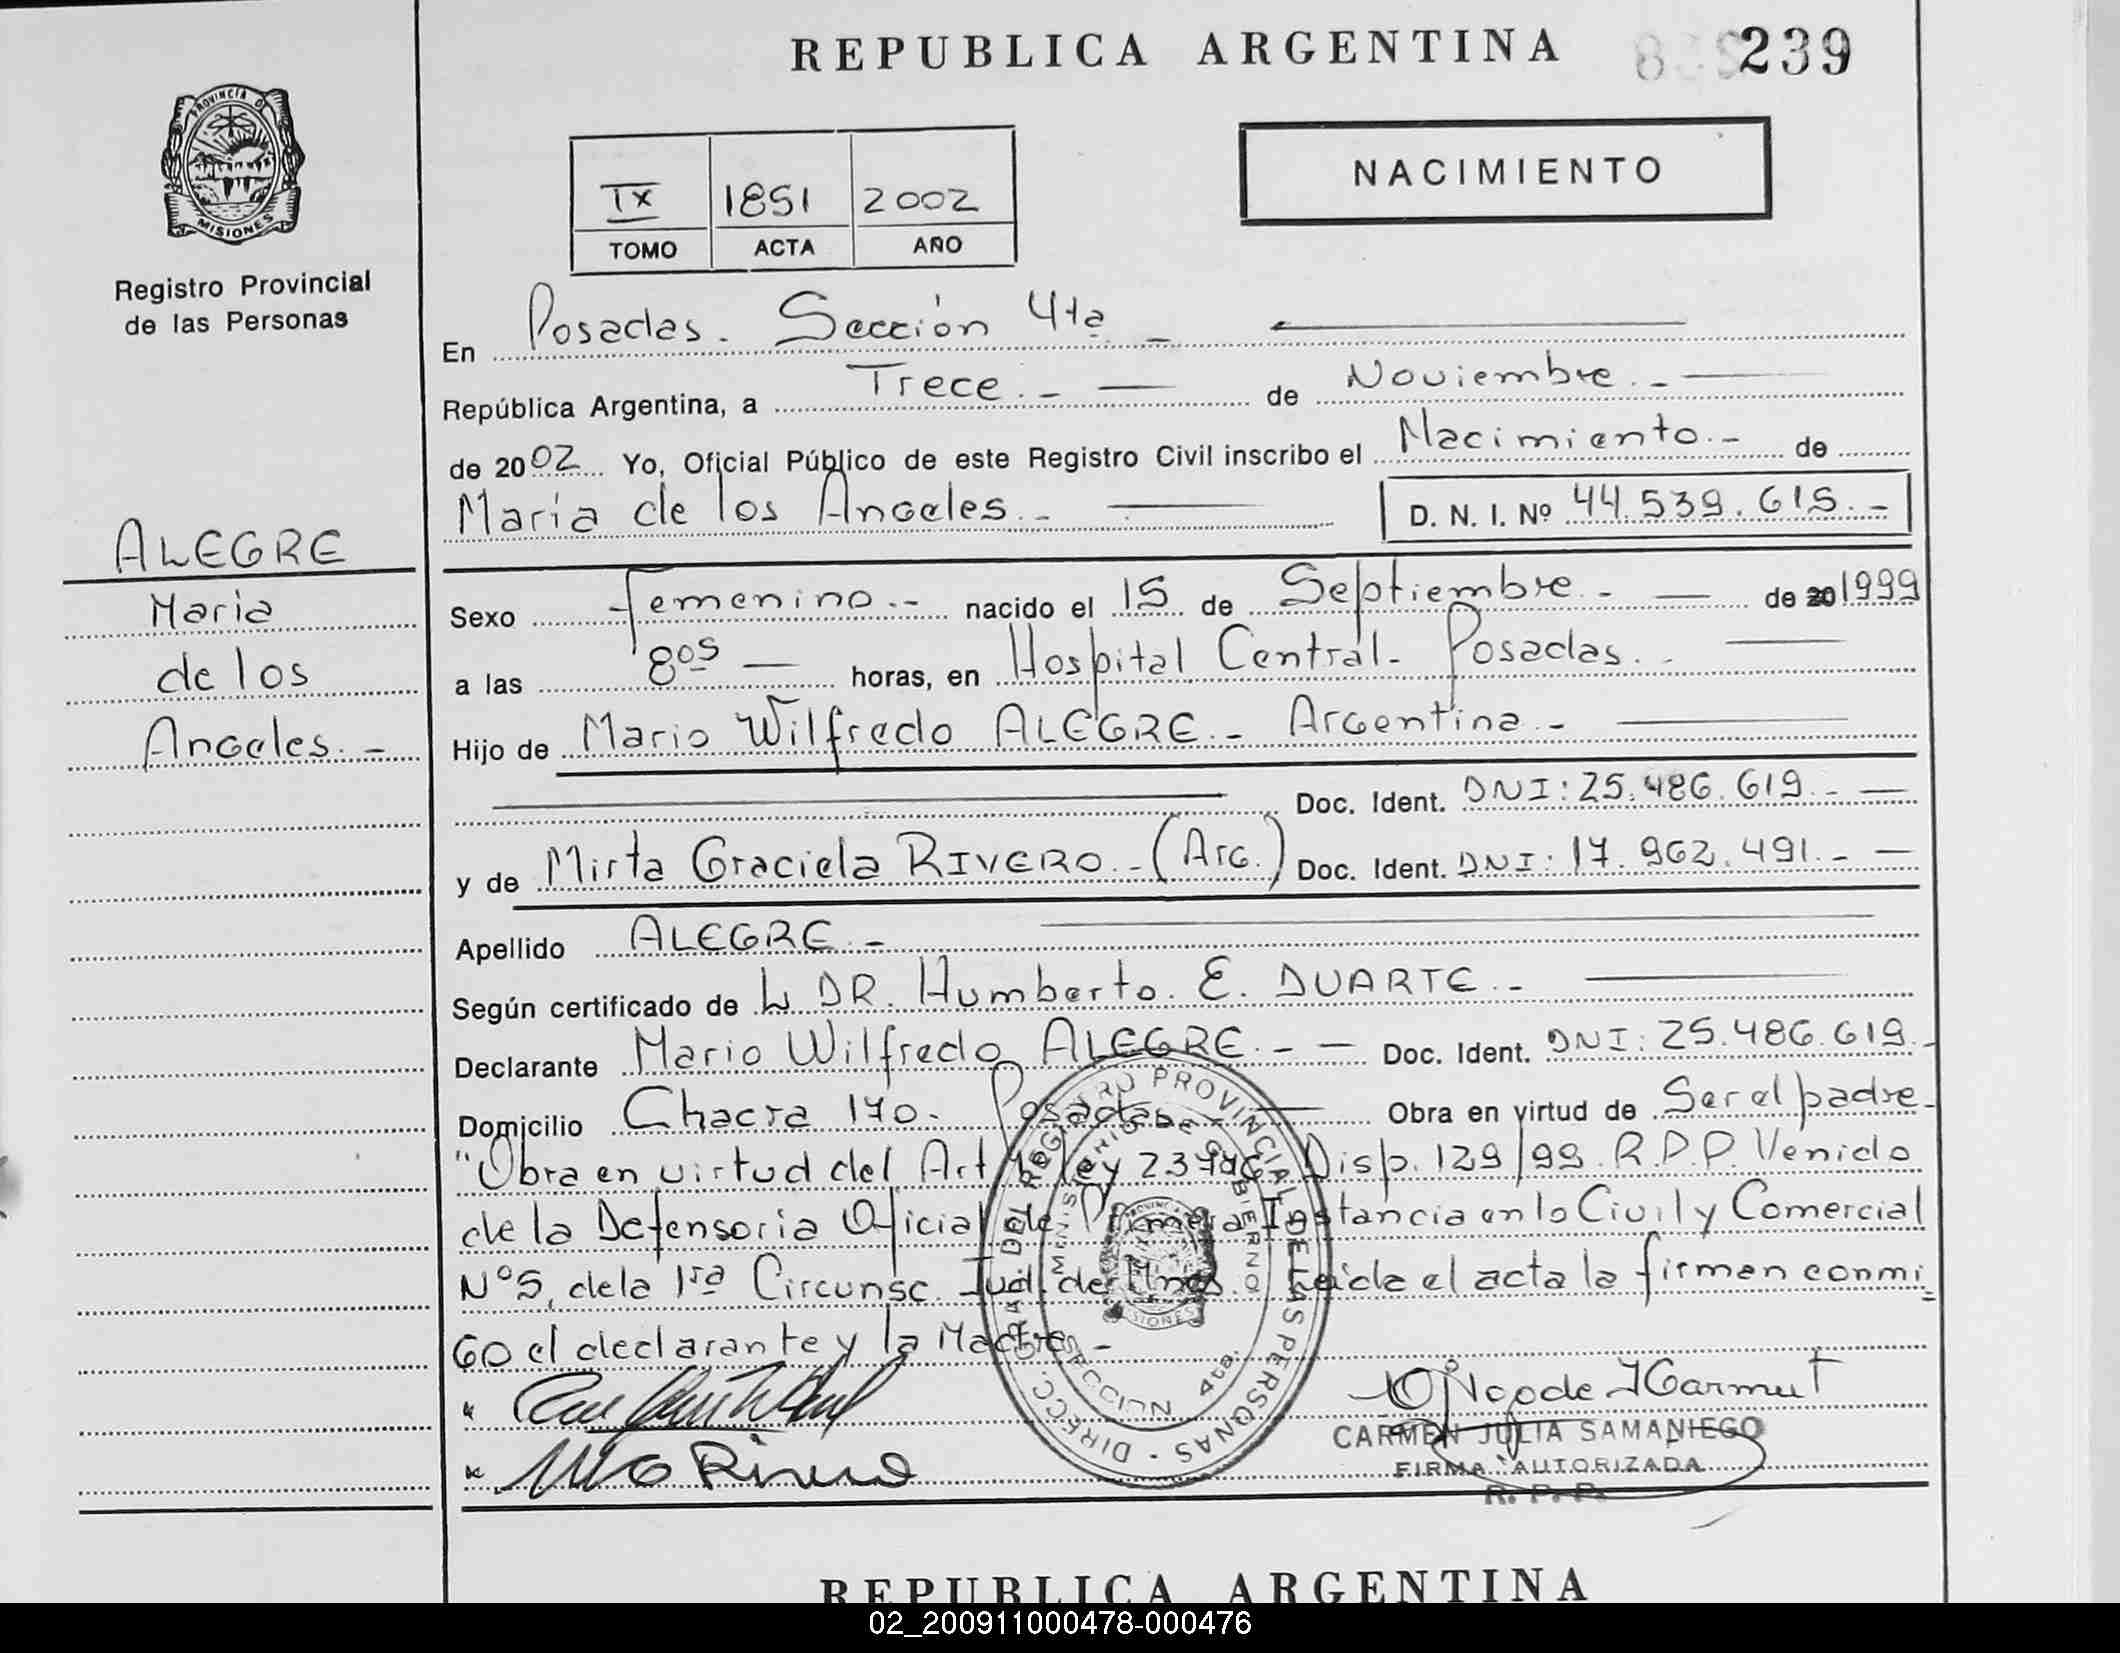 REPUBLICA ARGENTINA 239
PROVINCIA D
MISIONES
Registro Provincial
de las Personas
IX 1851 2002
TOMO ACTA AÑO
NACIMIENTO
En Posadas. Sección 4ta -
República Argentina, a Trece.- de Noviembre.-
de 2002 Yo, Oficial Público de este Registro Civil inscribo el Nacimiento.- de
María de los Angeles.- D. N. I. Nº 44.539.615.-
ALEGRE
Maria
de los
Angeles.-
Sexo Femenino.- nacido el 15 de Septiembre.- de 20 1999
a las 8⁰⁵ horas, en Hospital Central- Posadas.-
Hijo de Mario Wilfredo ALEGRE.- Argentina.-
Doc. Ident. DNI: 25.486.619.-
y de Mirta Graciela RIVERO.-(Arg.) Doc. Ident. DNI: 17.962.491.-
Apellido ALEGRE.-
Según certificado de L DR. Humberto. E. DUARTE.-
Declarante Mario Wilfredo ALEGRE.- Doc. Ident. DNI: 25.486.619.-
Domicilio Chacra 170. Posadas.- Obra en virtud de Ser el padre-
"Obra en virtud del Art Ley Disp. 129/99. R.P.P. Venido
de la Defensoria Oficial de Primera Instancia en lo Civil y Comercial
Nº5, de la 1ra Circunsc. Jud. de Mnes. Leida el acta la firman conmi
go el declarante y la Madre.-
DIRECC. GRAL. DEL REGISTRO PROVINCIAL DE LAS PERSONAS
MINISTERIO DE GOBIERNO
SECCION 4ta.
CARMEN JULIA SAMANIEGO
FIRMA AUTORIZADA
R. P. P.
REPUBLICA ARGENTINA
02_200911000478-000476